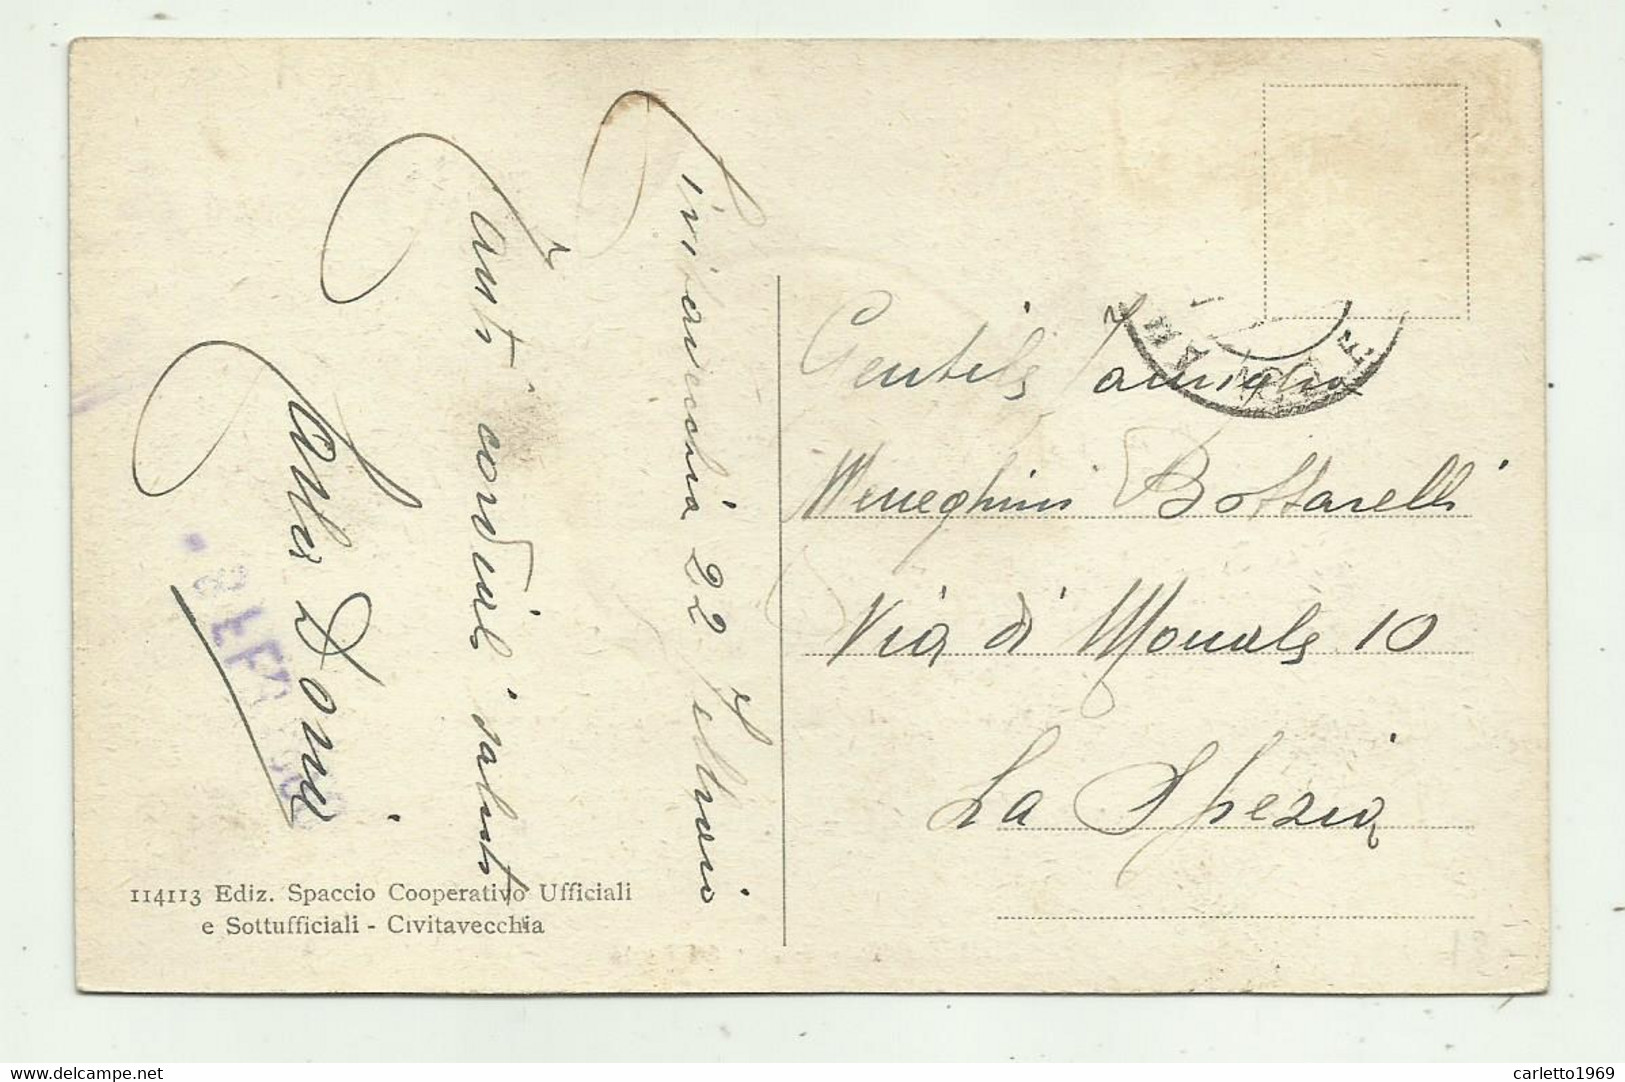 Civitavecchia 22 Febbraio
Tanti cordiali saluti
Dona
Gentile Famiglia
Meneghini Bottarelli
Via di Monale 10
La Spezia
114113 Ediz. Spaccio Cooperativo Ufficiali
e Sottufficiali - Civitavecchia
carletto1969
delcampe.net